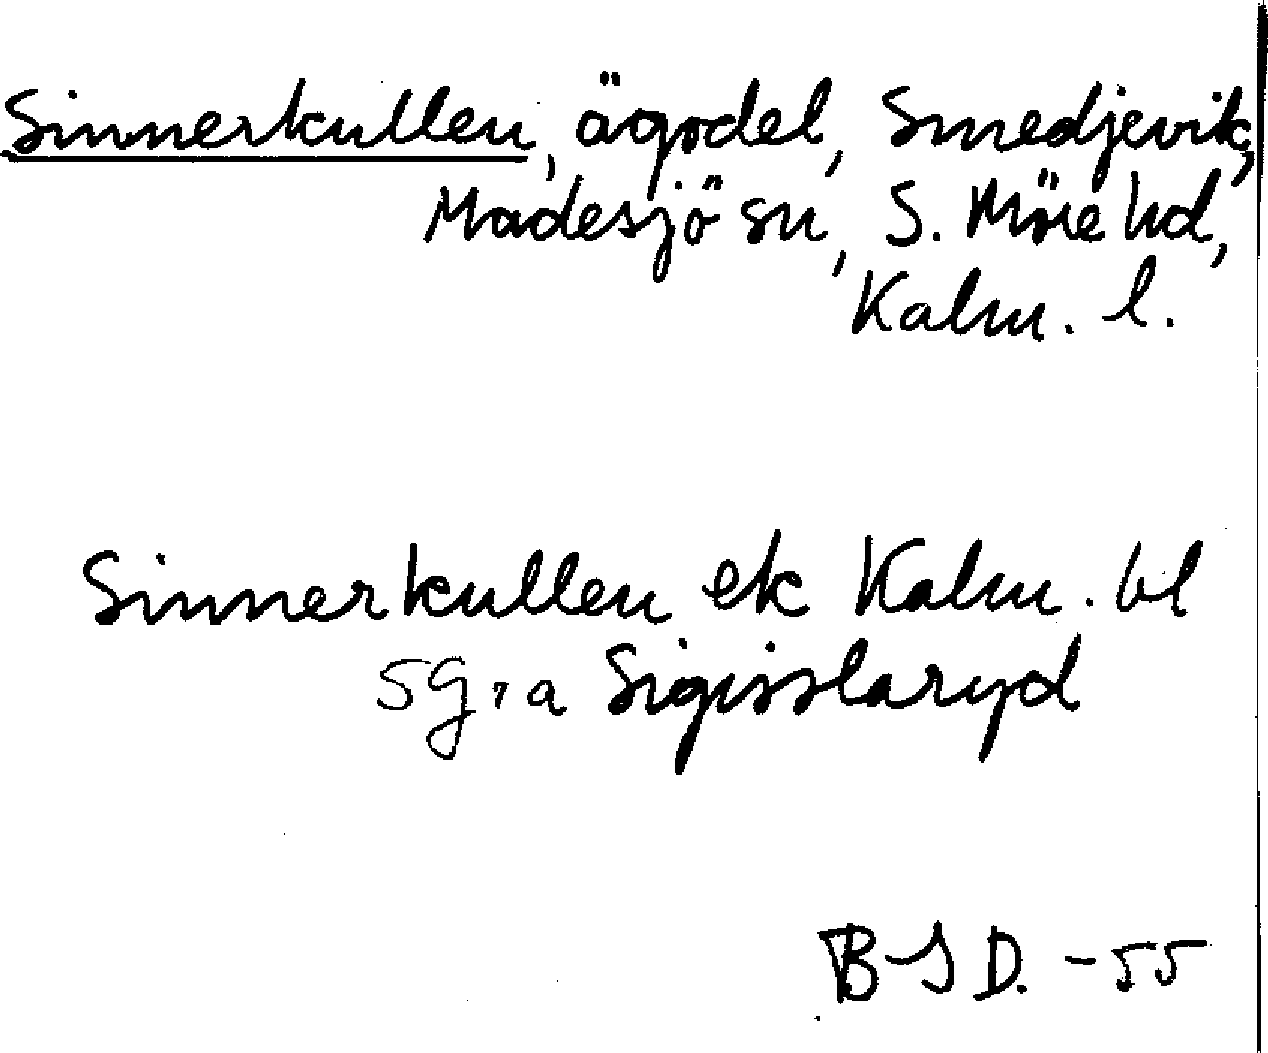 Sinnerkullen, ägodel, Smedjevik,
Madesjö sn, S. Möre hd,
Kalm. l.
Sinnerkullen ek Kalm. bl
5G, a Sigisslaryd
B-J D. -55